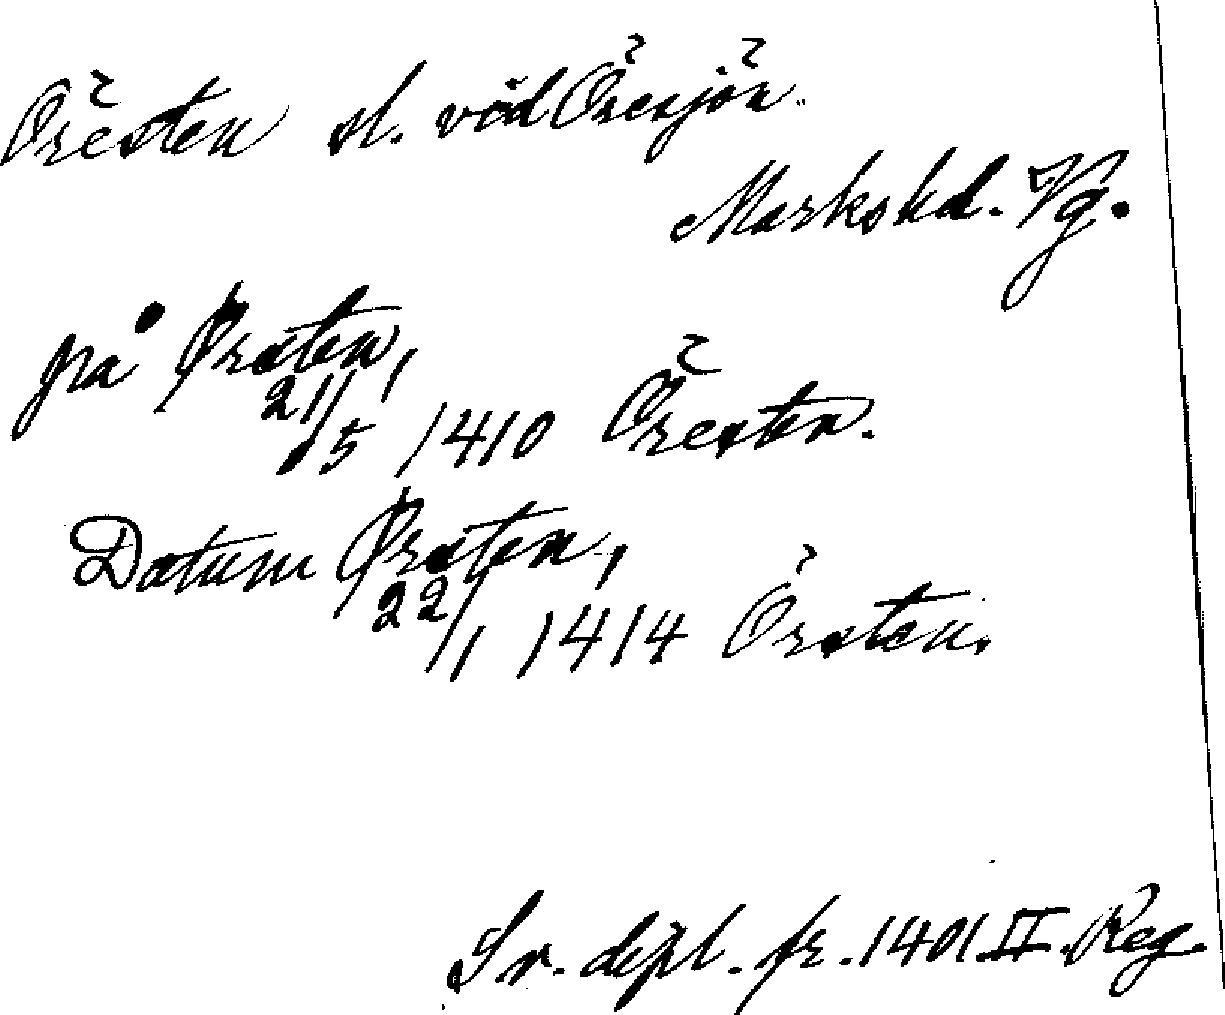 Öresten sl. vid Öresjön.
Markshd. Vg.
pa Ørsten,
21/5 1410 Öresten.
Datum Ørsten,
22/1 1414 Örsten.
Sv. dipl. fr. 1401 II. Reg.